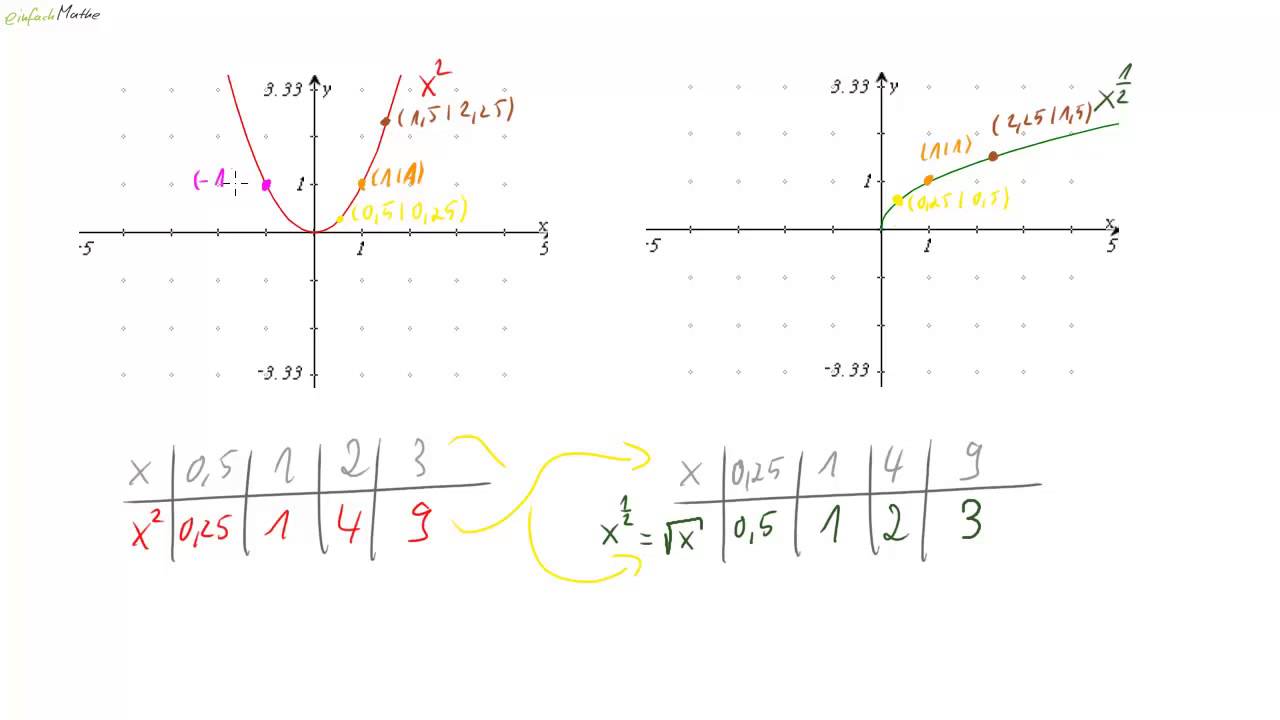 einfachMathe
x²
3.33 y
(1,5|2,25)
(-1
1
(1|1)
(0,5|0,25)
x
-5
1
5
-3.33
x^{1/2}
3.33 y
(2,25|1,5)
(1|1)
1
(0,25|0,5)
x
-5
1
5
-3.33
x 0,5 1 2 3
x² 0,25 1 4 9
x 0,25 1 4 9
x^{1/2} = √x 0,5 1 2 3